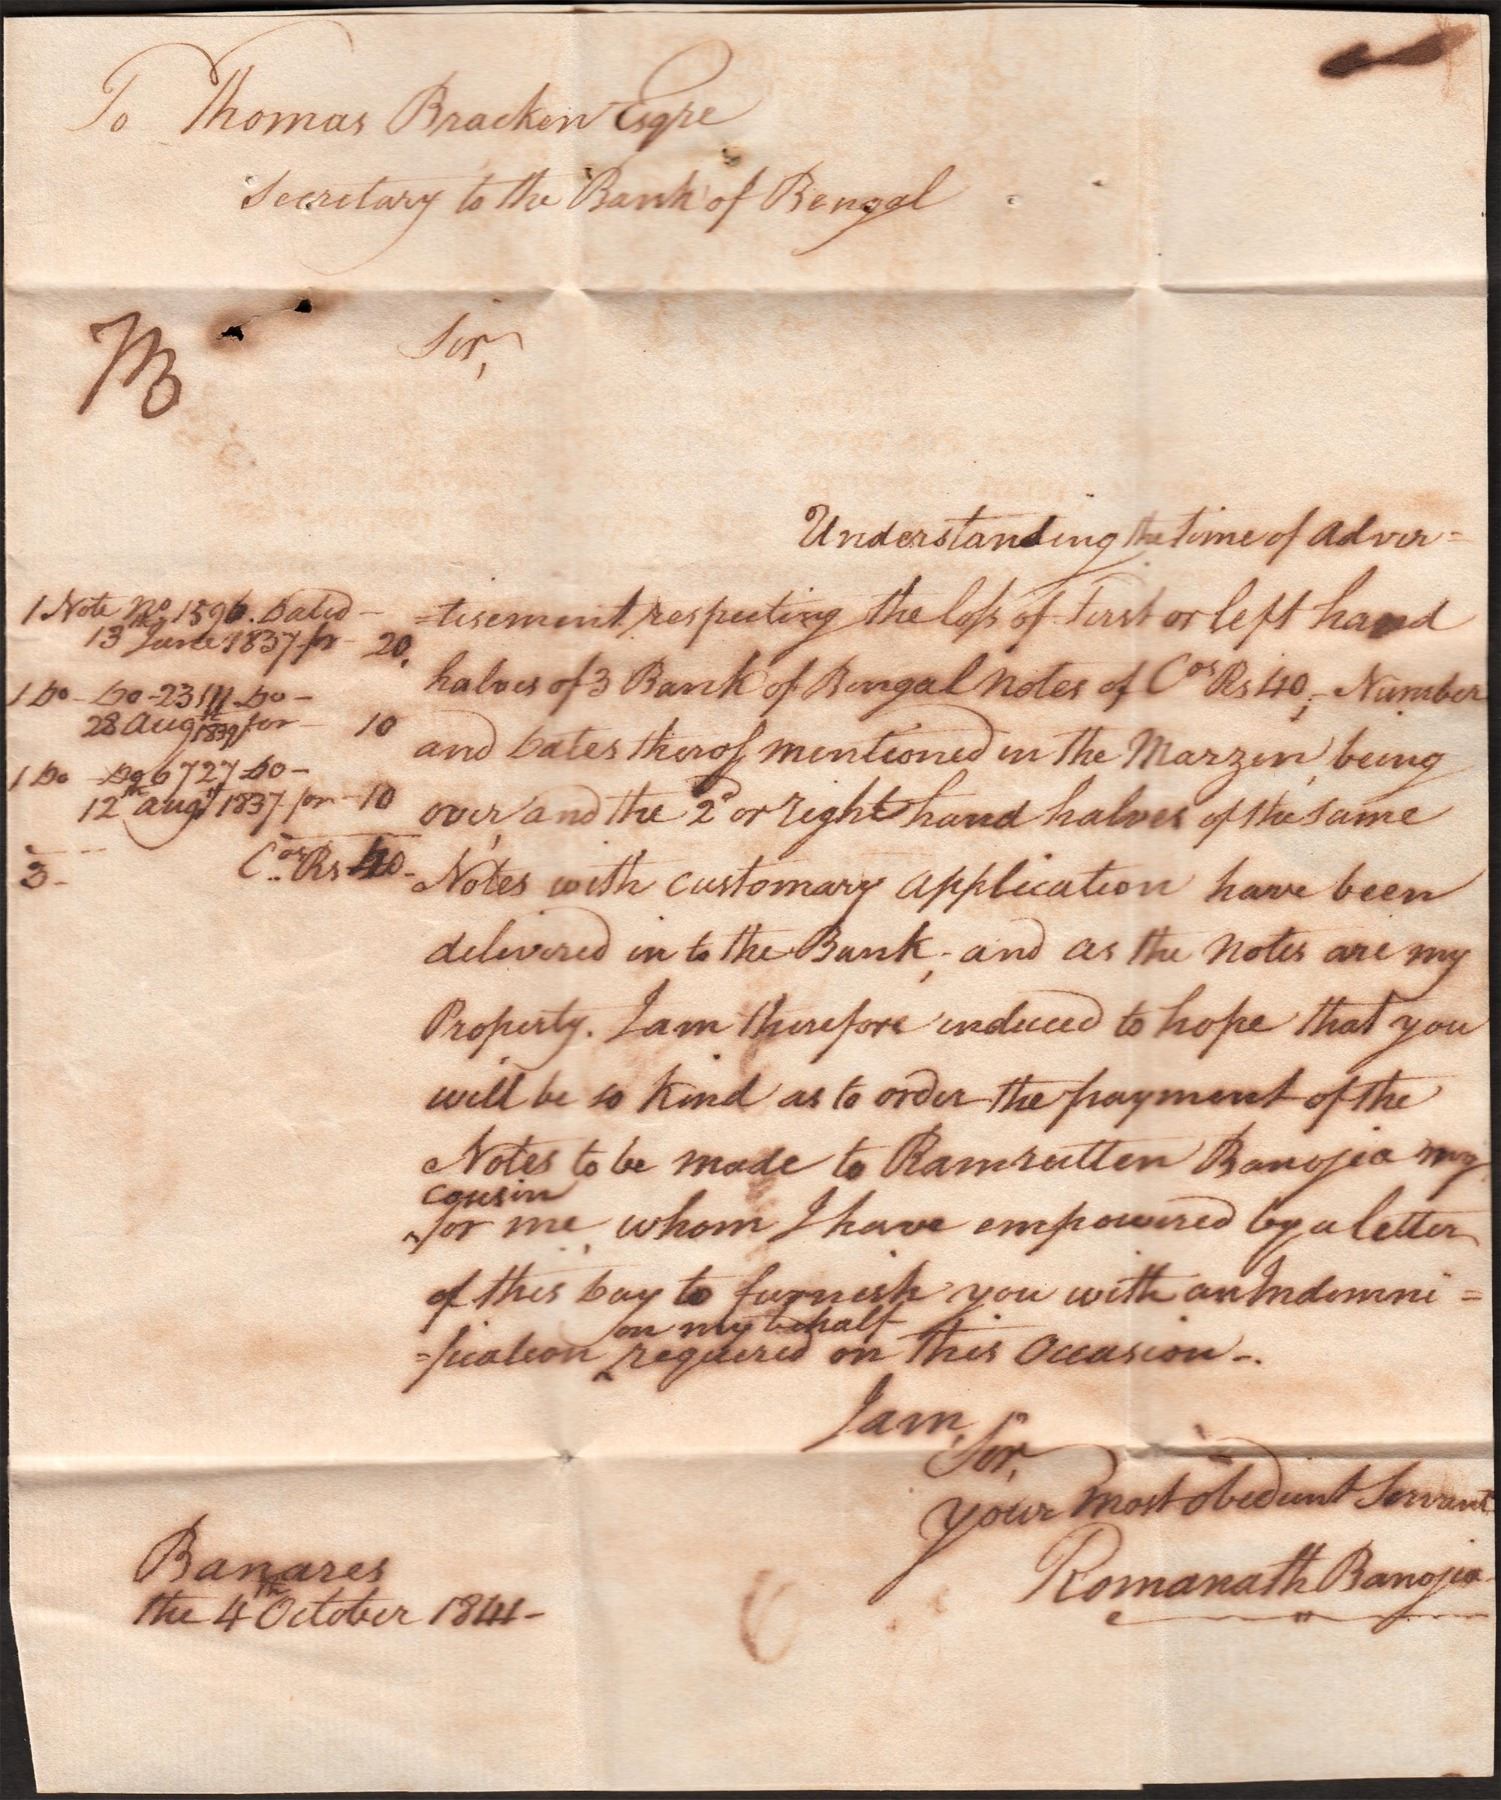 To Thomas Bracken Esqre
Secretary to the Bank of Bengal
TB
Sir,
Understanding the time of Adver=
=tisement respecting the loss of First or left hand
halves of 3 Bank of Bengal Notes of Cos Rs 40,- Number
and Dates therof mentioned in the Marzen, being
over, and the 2d or right hand halves of the same
Notes with customary application have been
delivered in to the Bank,- and as the Notes are my
Property. I am therefore induced to hope that you
will be so kind as to order the payment of the
Notes to be made to Ramrutten Banojea my
cousin
^for me, whom I have empowered by a letter
of this Day to furnish you with an Indemni=
on my behalf
=fication ^required on this Occasion-.
I am,
Sir,
your most obedient Servant
Romanath Banojea
1 Note No 1596. Dated-
13th June 1837 for - 20,
1 Do - Do - 23111 Do -
28 Augt 1839 for - 10
1 Do - Do 6727 Do -
12th Augt 1837 for - 10
3- Cos Rs 40-
Banares
the 4th October 1841-